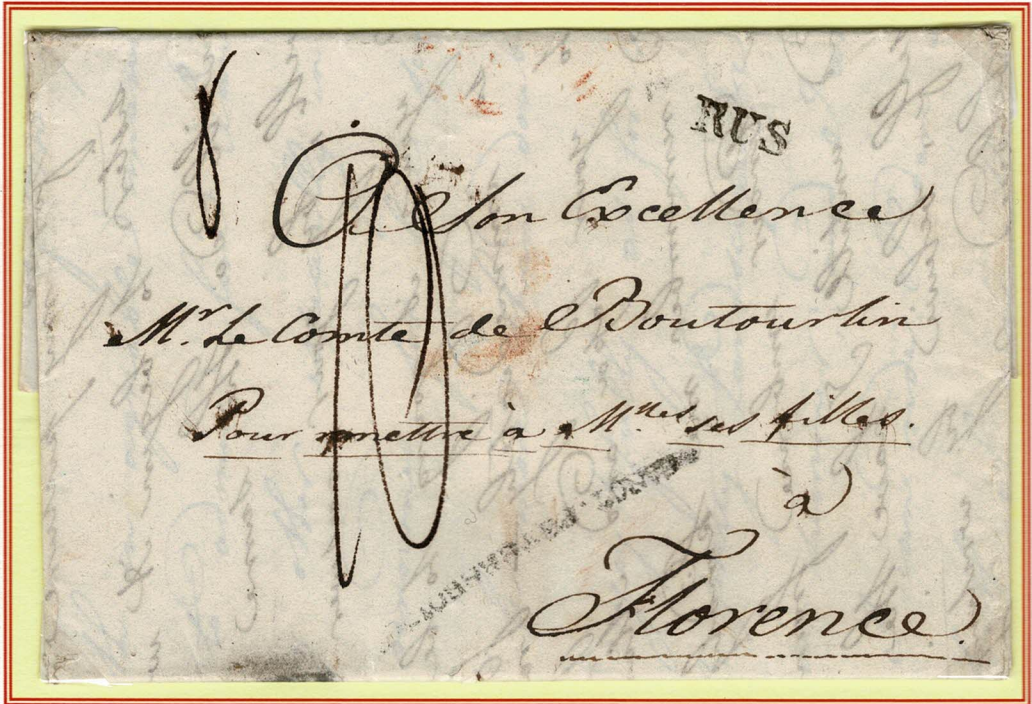 RUS
10
à Son Excellence
Mr. Le Comte de Boutourlin
Pour remettre à Mlles ses filles.
à
Florence.